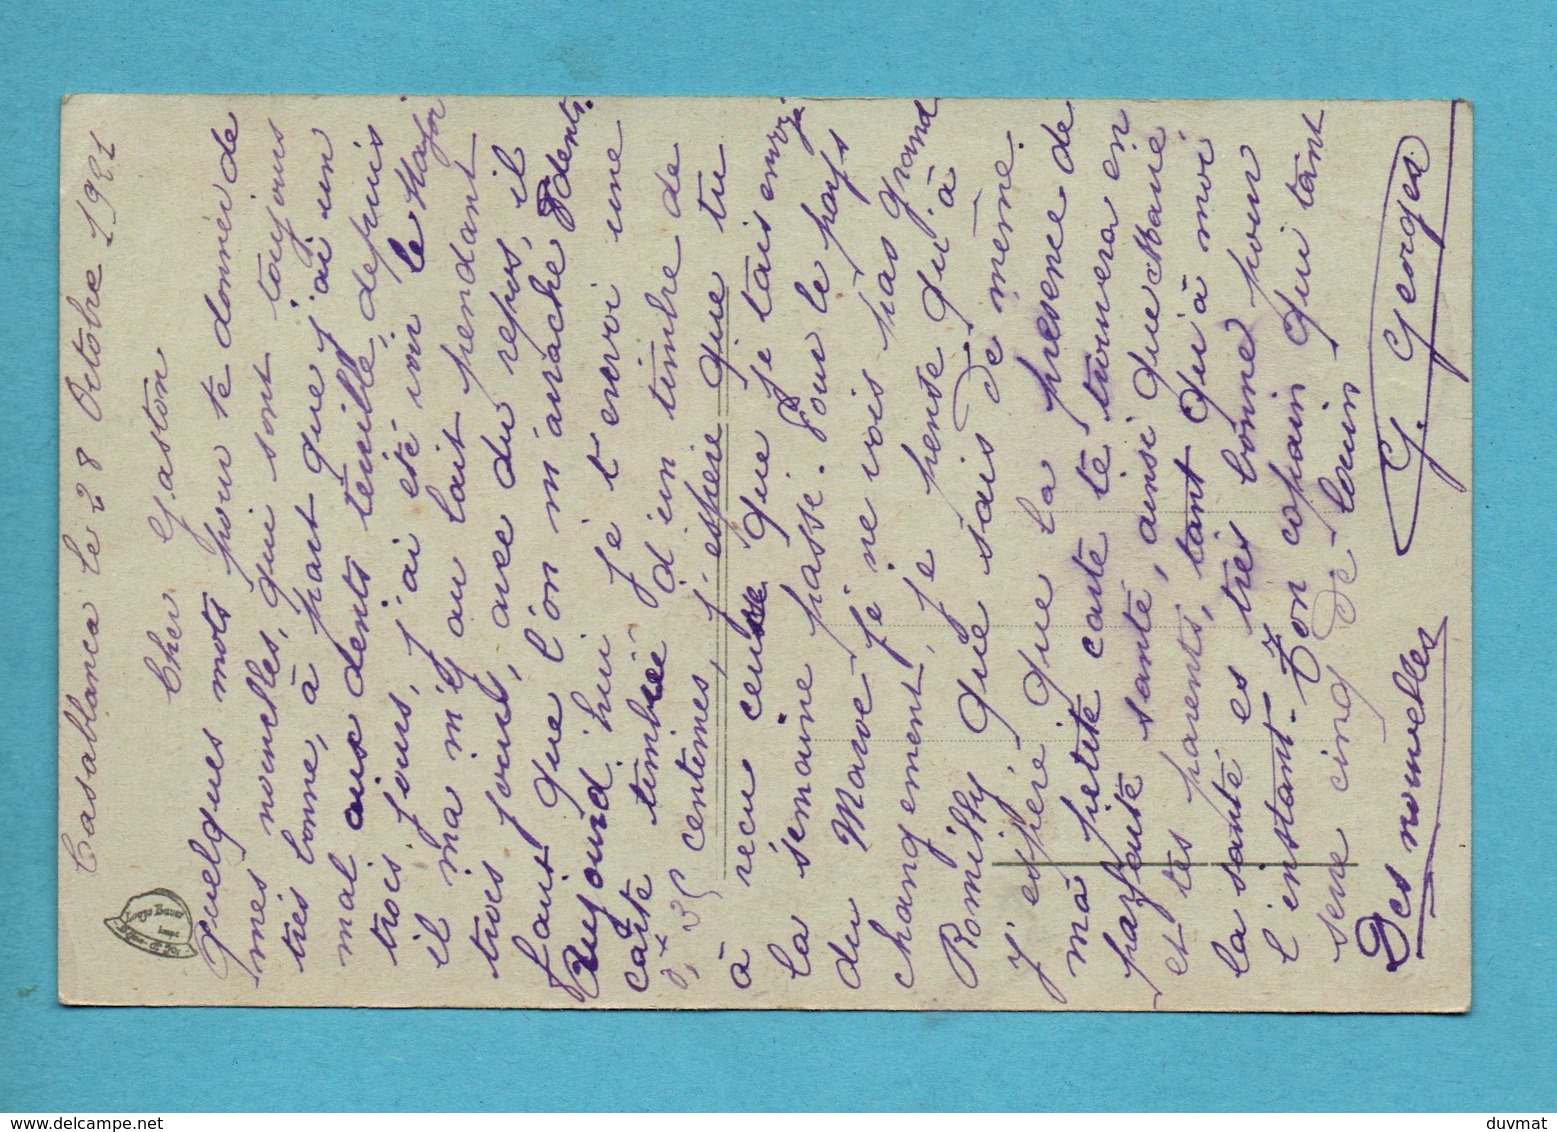 Casablanca le 28 Octobre 1921
Cher Gaston
Quelques mots pour te donnée de
mes nouvelles, qui sont toujours
très bonne, à part que j'ai un
mal aux dents terrible, depuis
trois jours, j'ai été voir le Major
il ma mis au lait pendant
trois jours, avec du repos, il
faut que l'on m'arrache 8 dents.
Aujourd'hui je t'envoi une
carte timbrée d'un timbre de
0,35 centimes, j'espère que tu
à recu ceusse que je tais envoyé
la semaine passé. Pour le pays
du Maroc je ne vois pas grand
changement, je pense qu'à
Romilly que sais de même.
J'espère que la présence de
ma petite carte te trouvera en
parfaite santé, ainsi que Marie
et tes parents, tant qu'à moi
la santé es très bonne pour
l'instant. Ton copain qui tant
sere cinq de louin
G. Georges
Des nouvelles
Louys Bauer
duvmat